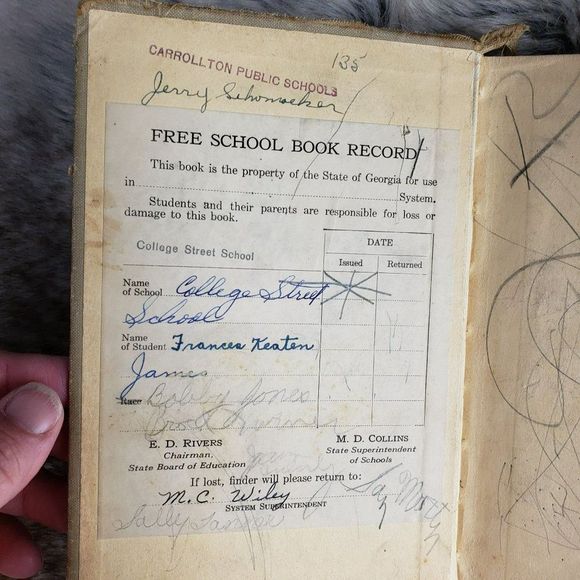 135
CARROLLTON PUBLIC SCHOOLS
Jerry Schomacker
FREE SCHOOL BOOK RECORD
This book is the property of the State of Georgia for use
in System.
Students and their parents are responsible for loss or
damage to this book.
College Street School
DATE
Issued Returned
Name
of School College Street
School
Name
of Student Frances Keaten
James
Race Bobby Jones
E. D. RIVERS
Chairman,
State Board of Education
M. D. COLLINS
State Superintendent
of Schools
If lost, finder will please return to:
M. C. Wiley
SYSTEM SUPERINTENDENT
Sally